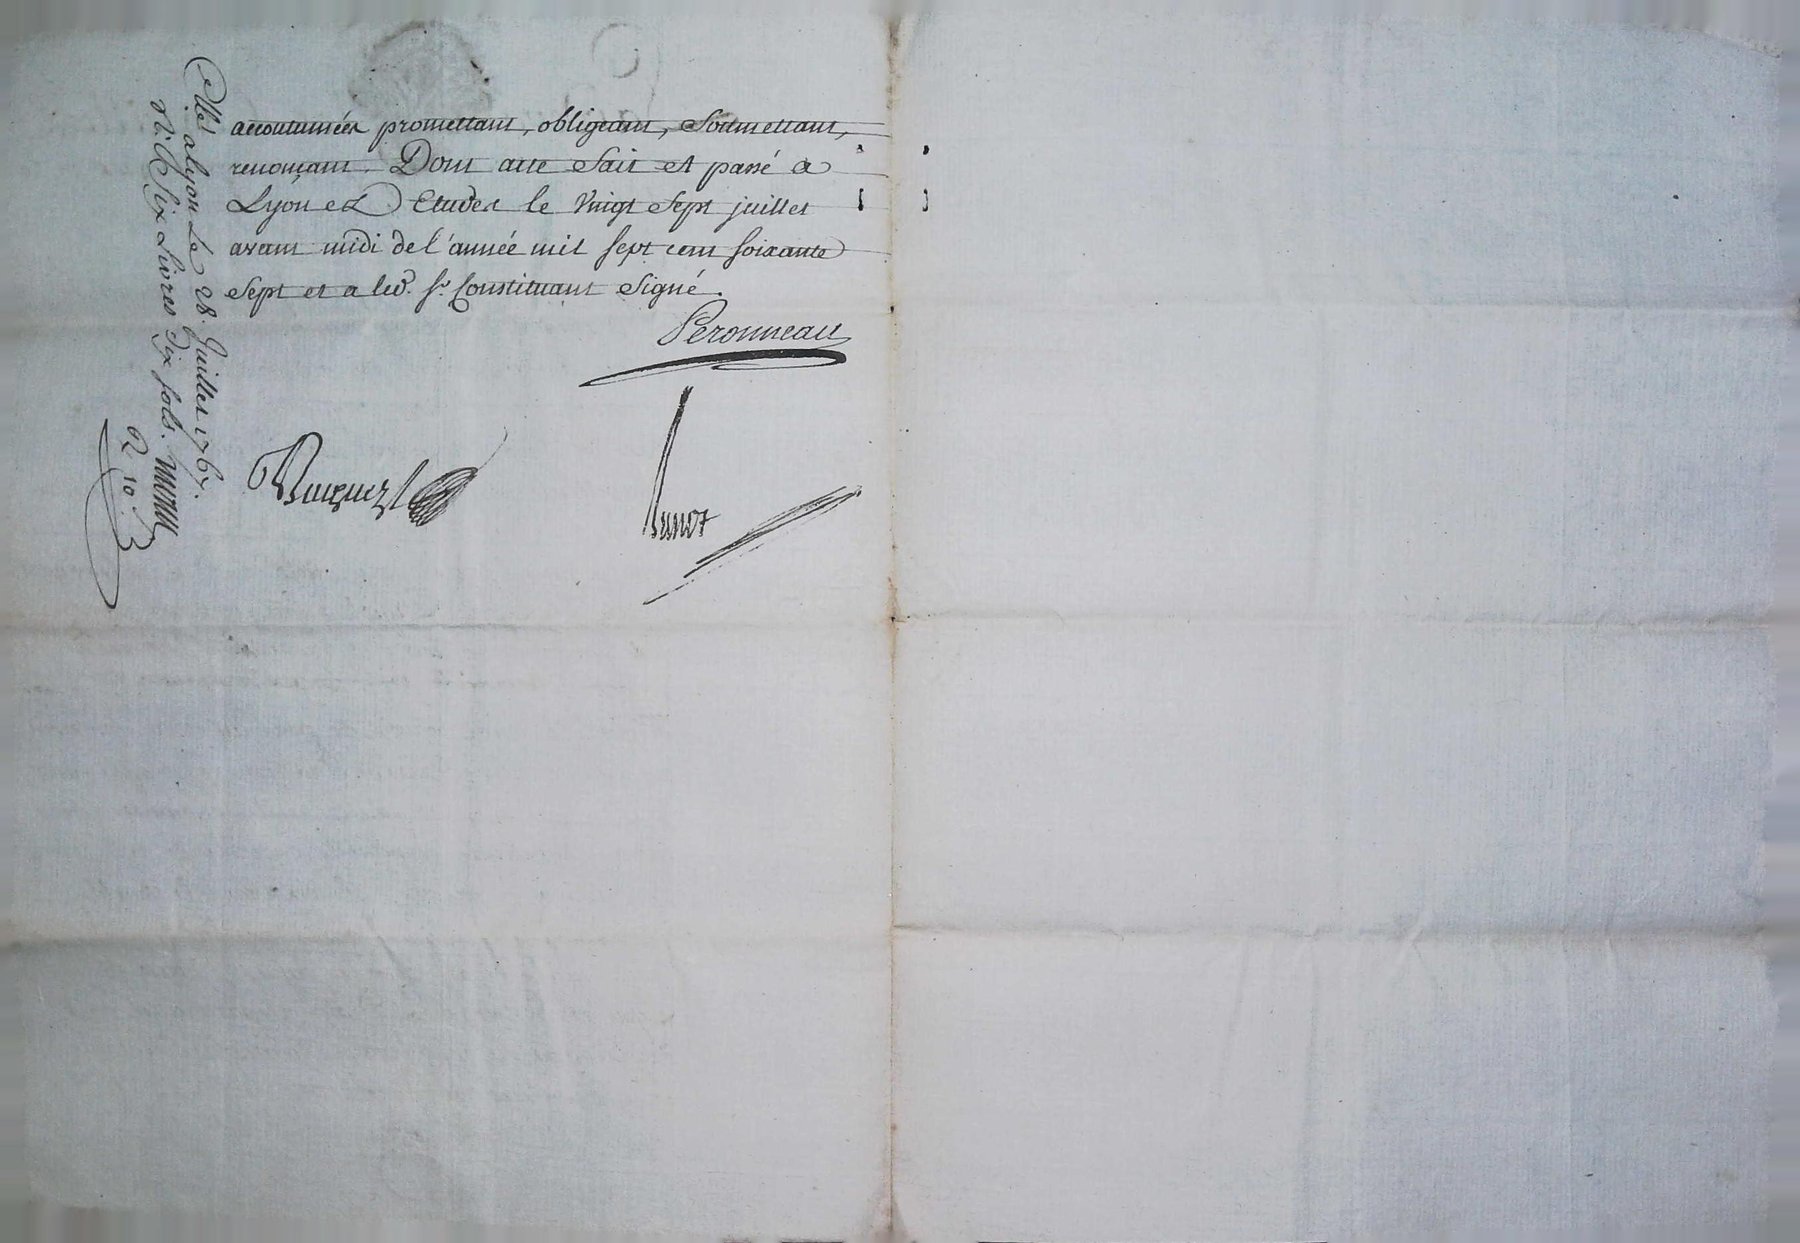 accoutumées promettant, obligeant, Soumettant,
renonçant. Dont acte Fait et passé a
Lyon ez Etudes le Vingt Sept juillet
avant midi de l'année mil sept cent soixante
Sept et a led. Sr. Constituant Signé.
Peronneau
llé a Lyon Le 28. Juillet 1767.
Six Livres Dix sols.
10